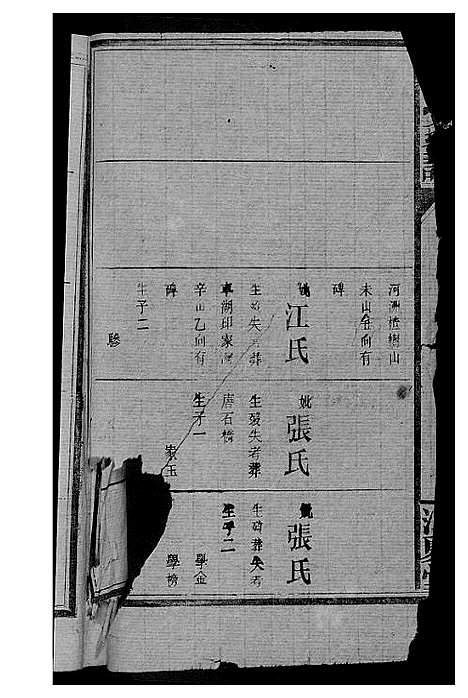 河洲橙樹山
未山丑向有
碑
妣江氏
生歿失考葬
車湖印家灣
辛山乙向有
碑
生子二
妣張氏
生歿失考葬
唐石橋
生子一
家玉
妣張氏
生歿葬失考
生子二
學金
學榜